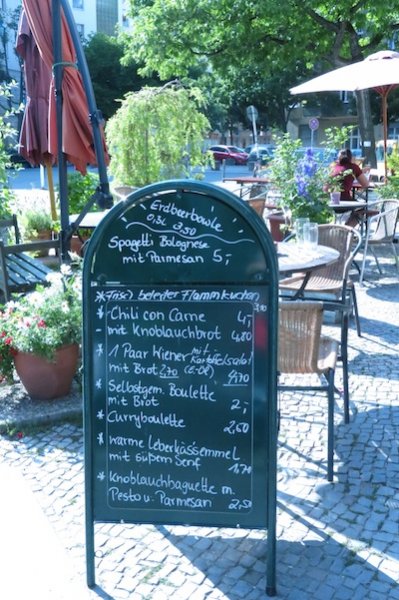 Erdbeerbowle
0,3L 3,50
Spagetti Bolognese
mit Parmesan 5,-
* Frisch beleider Flammkuchen
3,90
* Chili con Carne 4,-
mit Knoblauchbrot 4,80
* 1 Paar Wiener mit Kartoffelsalat
mit Brot 2,70 (E-DE) 4,70
* Selbstgem. Boulette
mit Brot 2,-
* Curryboulette 2,50
* warme Leberkässemmel
mit süßem Senf 1,70
* Knoblauchbaguette m.
Pesto u. Parmesan 2,50